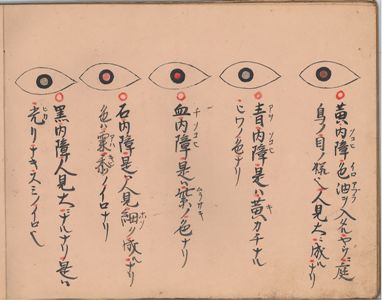 黄内障ノ色油ヲ入レタヤウニ庭
鳥ノ目ノ様ニ人見大ニ成ルナリ
青内障是ハ黄カチナル
ビワノ色ナリ
血内障是ハ紫ノ色ナリ
石内障是ハ人見細ク成ルナリ
色ハ粟黍ノイロナリ
黒内障ハ人見大ニナルナリ是ハ
光リナキスミノイロ也